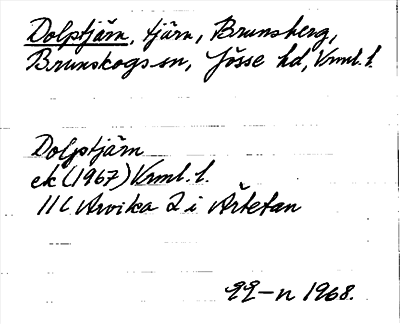 Dolptjärn, tjärn, Brunsberg,
Brunskogs sn, Jösse hd, Vrml. l.
Dolptjärn
ek (1967) Vrml. l.
11C Arvika 2 i Årtetan
99-n 1968.